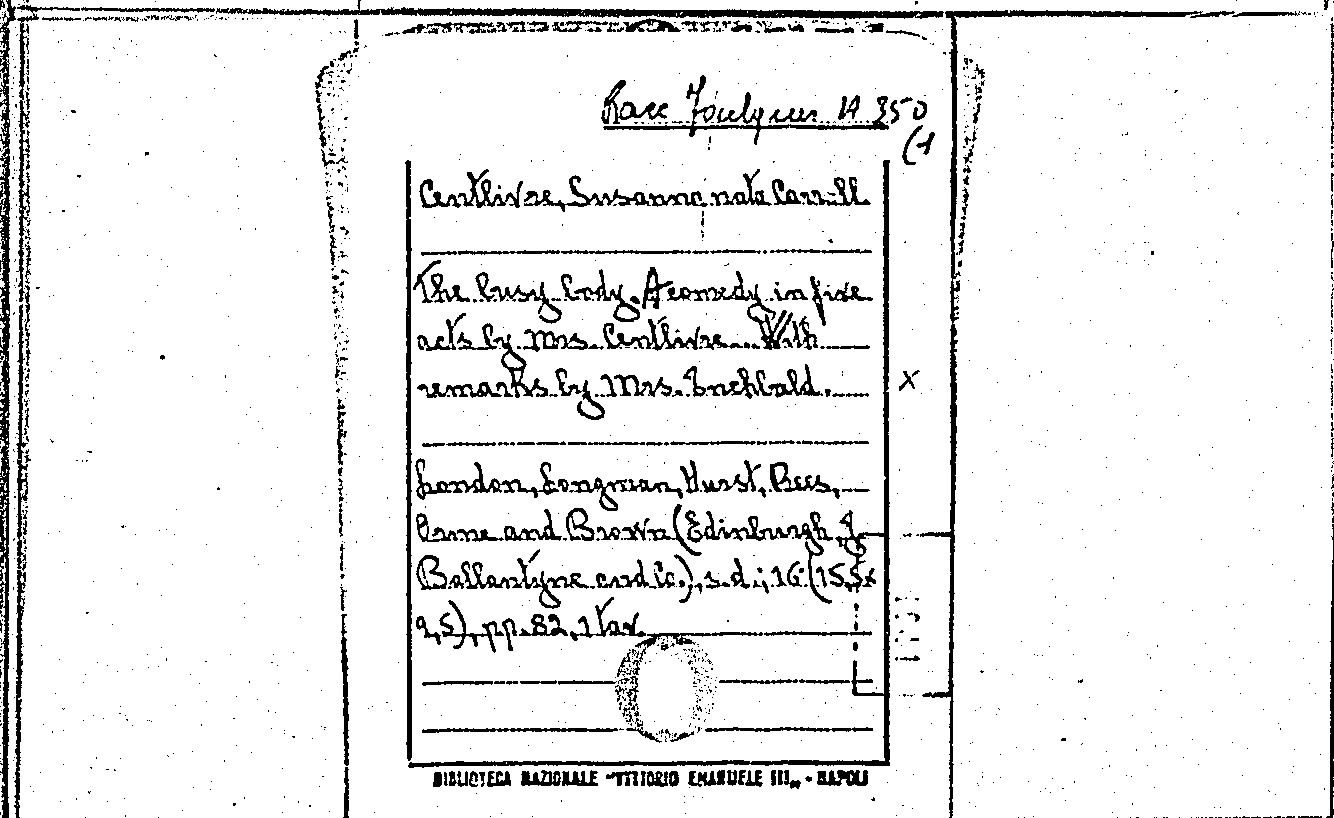 Racc Foulques A 350
(1
Centlivre, Susanna nata Carroll
The busy body. A comedy in five
acts by Mrs. Centlivre... With
remarks by Mrs. Inchbald.
London, Longman, Hurst, Rees,
Orme and Brown (Edinburgh, J.
Ballantyne and Co.), s.d.; 16° (15,5x
9,5), pp. 82, 1 tav.
x
BIBLIOTECA NAZIONALE "VITTORIO EMANUELE III„ - NAPOLI